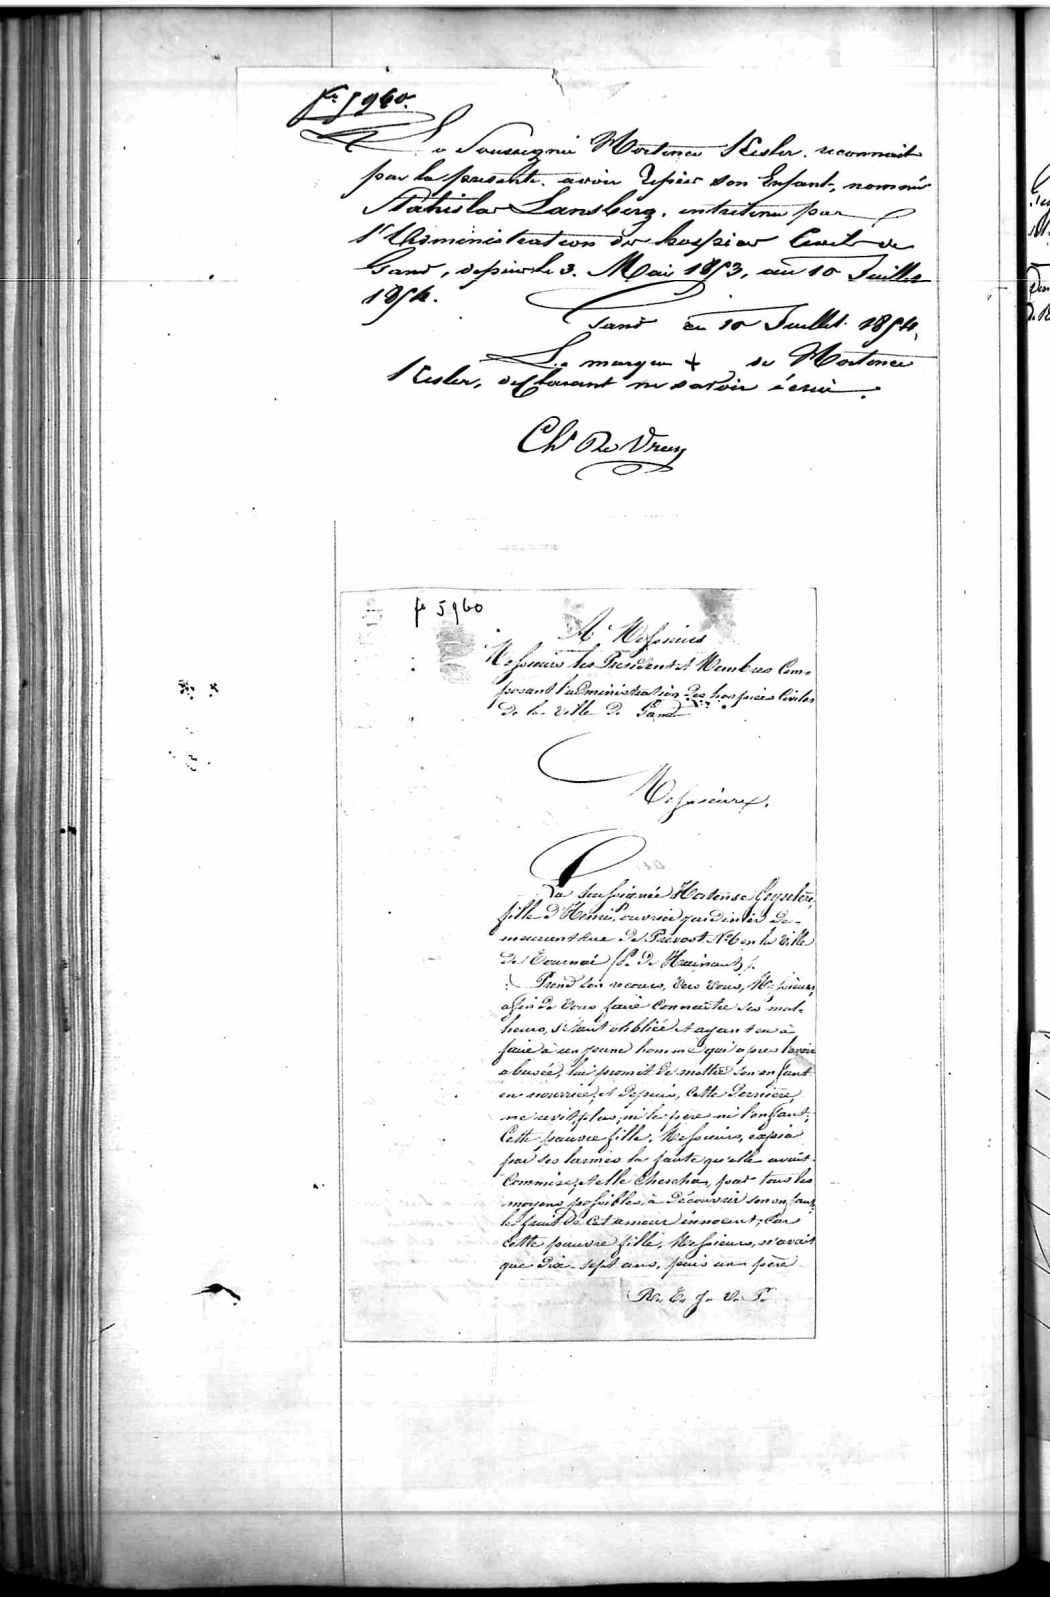 fo 5960.
La Soussignée Hortence Kesler. reconnait
par la presente. avoir Repier son Enfant, nommée
Stahislas Lansberg. entretenu par
l'Administration des hospices Civils de
Gand, depuis le 3. Mai 1853, au 10 Juillet
1854.
Gand ce 10 Juillet 1854,
La marque + de Hortence
Kesler, declarant ne savoir écrire.
Chs De Vreux
fo 5960
A Messieurs
Messieurs les President et Membres Com-
posant l'administration des hospices Civiles
de la Ville de Gand
Messieurs,
La soussignée Hortense
fille d'Henri, ouvrier jardinier de-
meurant Rue De Prévost No 6 en la Ville
de Tournai (Pce De Hainaut).
Prend son recours, Vers Vous, Messieurs,
afin de Vous faire Connaitre ses mal-
heurs, s'étant oubliée et ayant eu à
faire à un jeune homme qui apres l'avoir
abusée, lui promit de mettre son enfant
en nourrice, et Depuis, Cette Dernière,
ne revit plus, ni le père ni l'enfant;
Cette pauvre fille, Messieurs, expia
par ses larmes la faute qu'elle avait
Commise, et elle Chercha, par tous les
moyens possibles, à Découvrir son enfant,
le fruit de cet amour innocent; Car
cette pauvre fille, Messieurs, n'avait
que dix-sept ans, puis un père